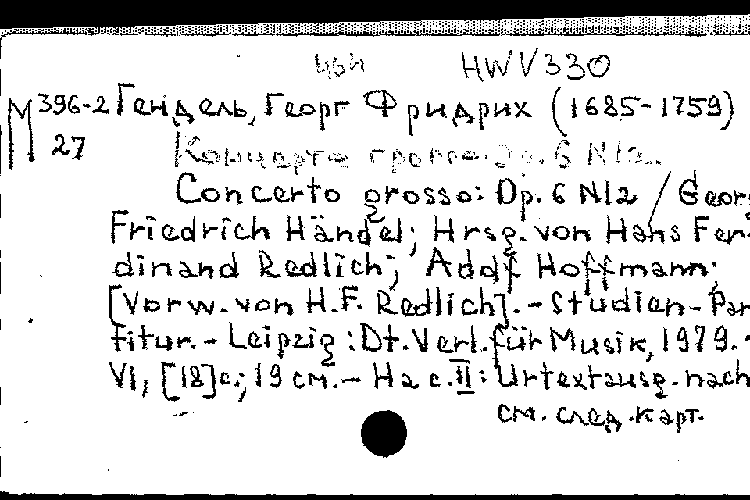 464 HWV 330
М 396-2 Гендель, Георг Фридрих (1685-1759)
27 Концерто гроссо. Op. 6 N12.
Concerto grosso: Op. 6 N12 / Georg
Friedrich Händel; Hrsg. von Hans Fer-
dinand Redlich; Adolf Hoffmann;
[Vorw. von H.F. Redlich]. - Studien-Par
titur. - Leipzig: Dt. Verl. für Musik, 1979. -
VI, [18]c.; 19 см. - На с. II: Urtextausg. nach
см. след. карт.